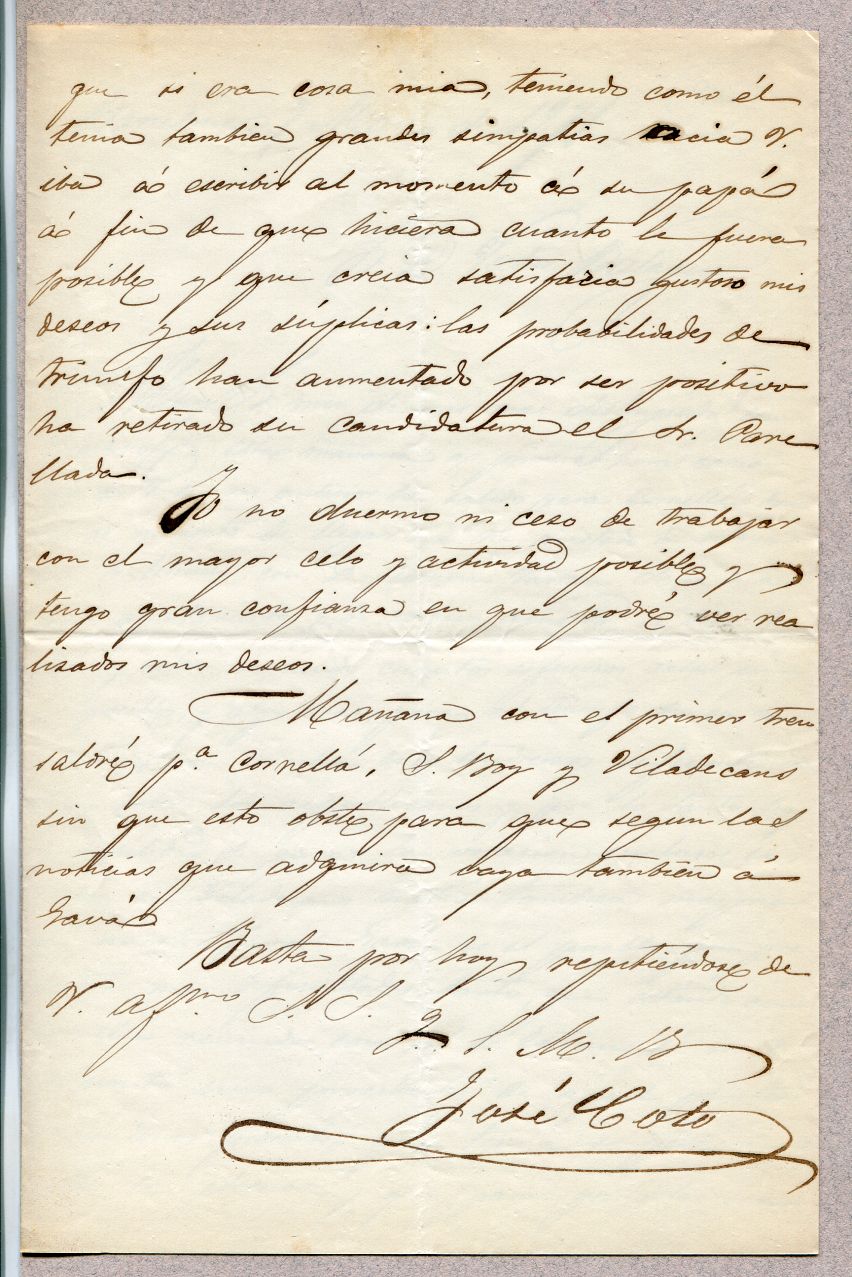 que si era cosa mia, teniendo como él
tenia tambien grandes simpatias hacia V.
iba á escribir al momento á su papá
á fin de que hiciera cuanto le fuera
posible y que creia satisfacia gustoso mis
deseos y sus súplicas: las probabilidades de
triunfo han aumentado por ser positivo
ha retirado su candidatura el Sr. Pare
llada.
Yo no duermo ni ceso de trabajar
con el mayor celo y actividad posible y
tengo gran confianza en que podré ver rea
lisados mis deseos.
Mañana con el primer tren
saldré pª Cornellá, S. Boy y Viladecans
sin que esto obste para que segun las
noticias que adquiera vaya tambien á
Gavá
Basta por hoy repitiéndose de
V. afmo S. S.
q. S. M. B
José Coto